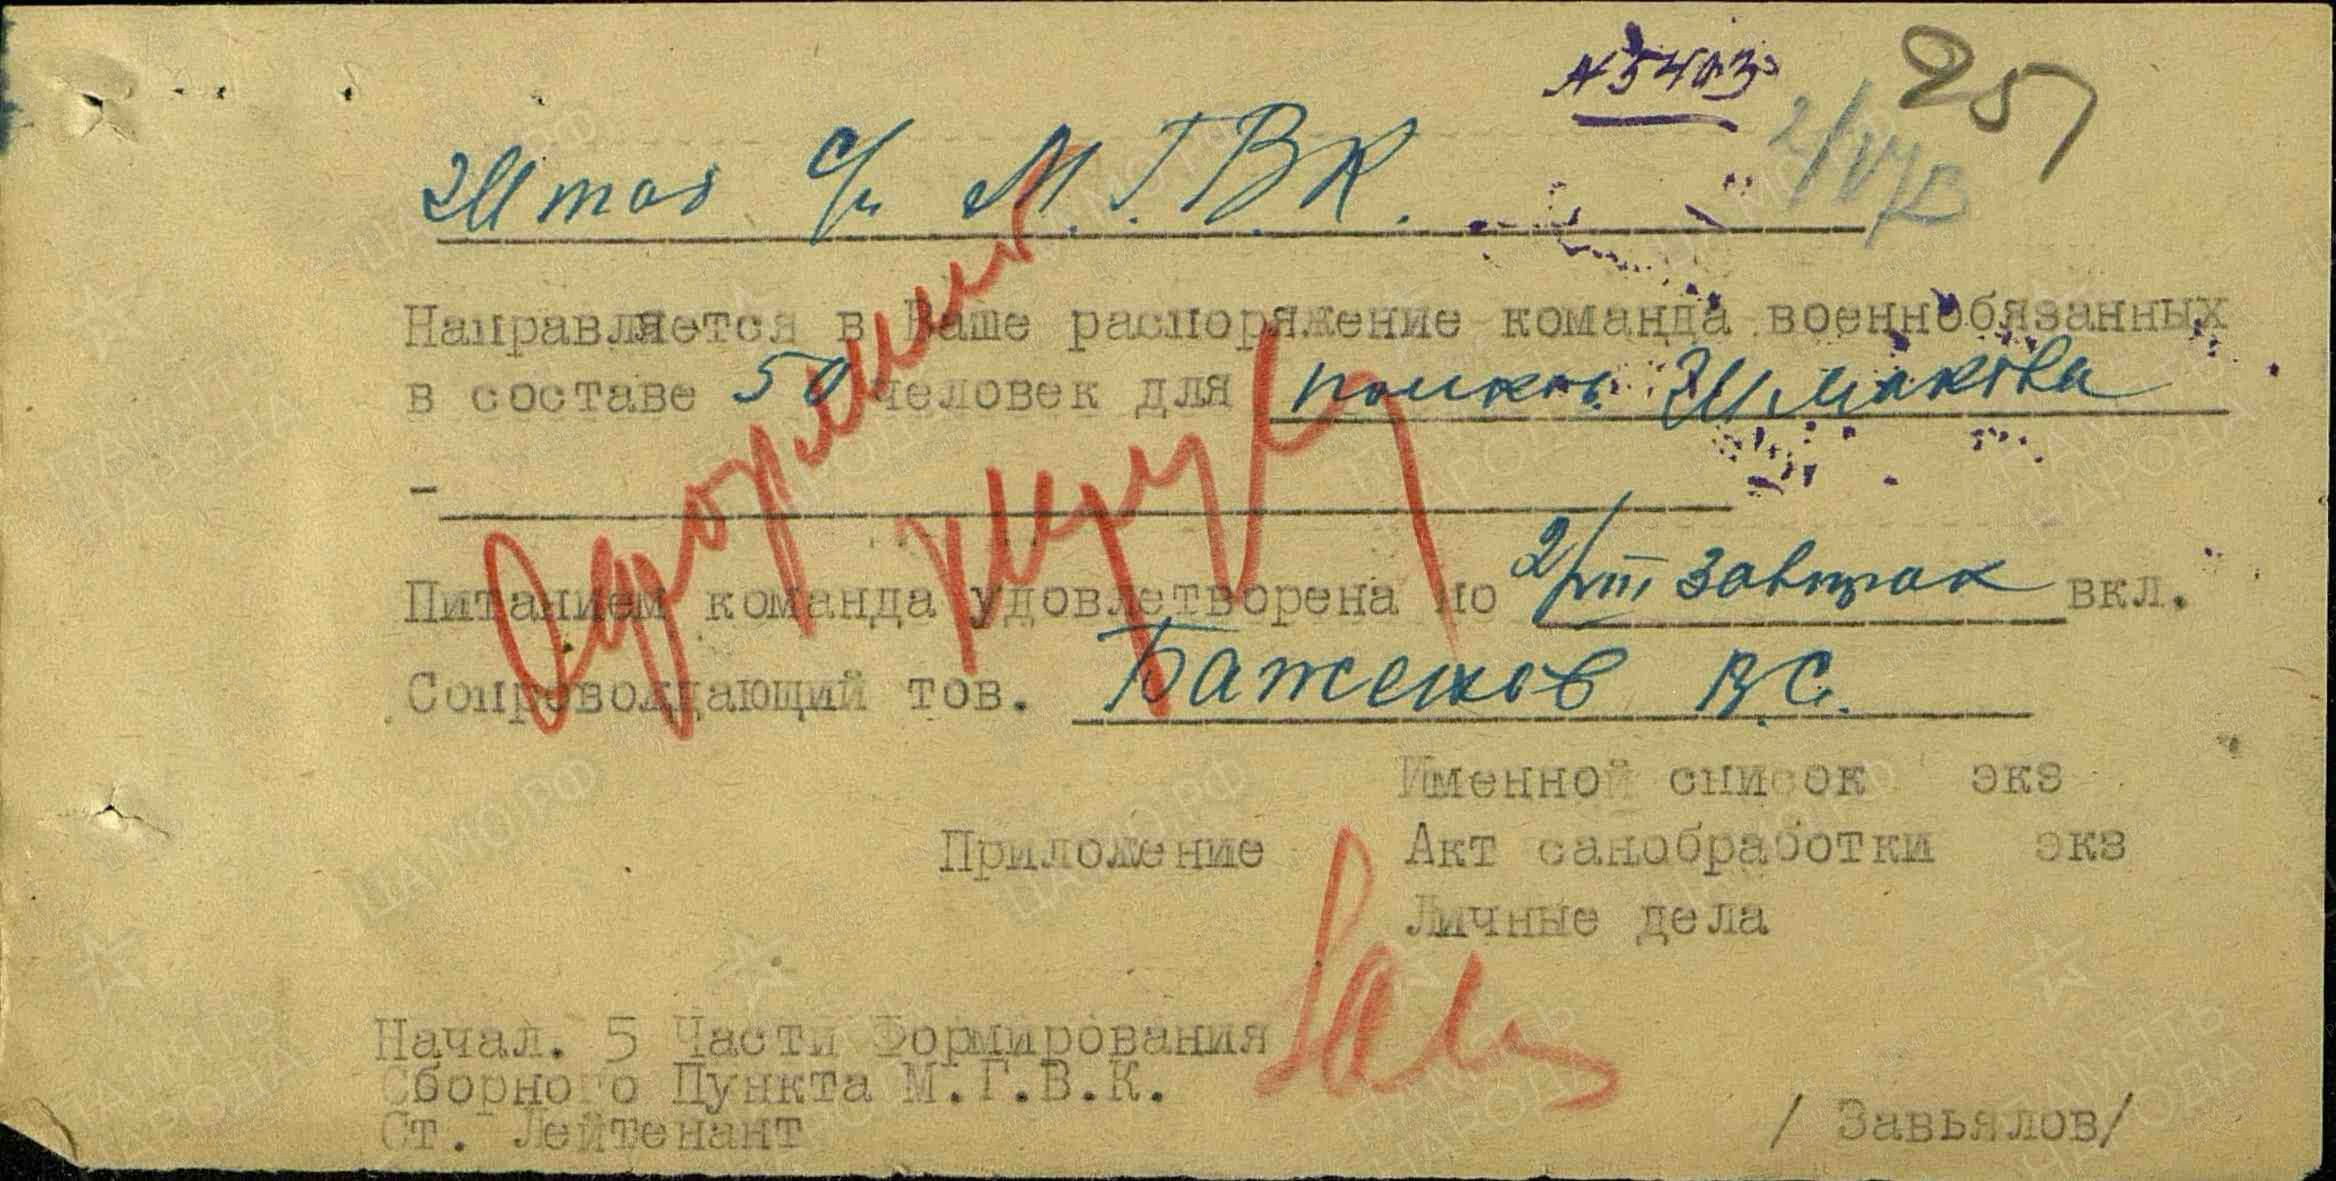 № 5403
257
Штаб с/п М.Г.В.К.
Направляется в Ваше распоряжение команда военнобязанных
в составе 50 человек для Шмакова
Питанием команда удовлетворена по 2/VIII завтрак вкл.
Сопровождающий тов. Баженов В.С.
Именной список экз
Приложение Акт санобработки экз
Личные дела
Начал. 5 Части Формирования
Сборного Пункта М.Г.В.К.
Ст. Лейтенант
/ Завьялов/